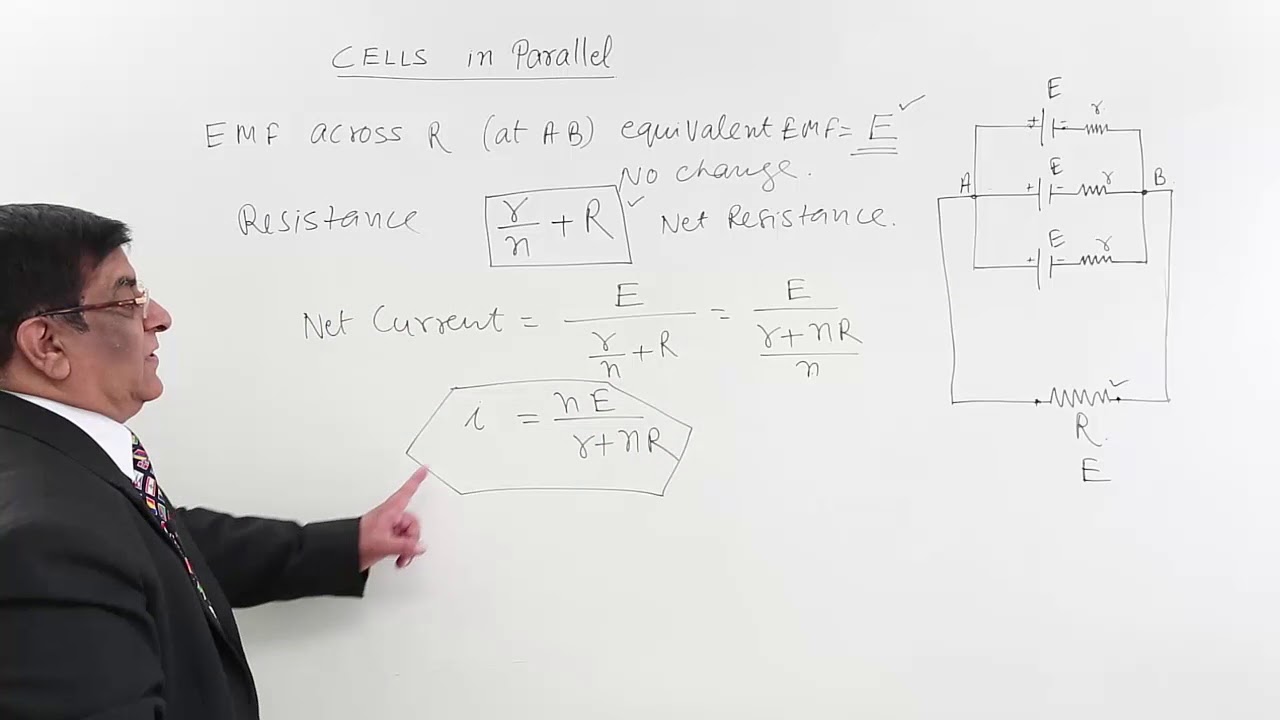 CELLS in Parallel
EMF across R (at AB) equivalent EMF = E ✓
No change.
Resistance r/n + R ✓ Net Resistance.
Net Current = E / (r/n + R) = E / ((r+nR)/n)
i = nE / (r+nR)
E
+ - r
E
A + - r B
E
+ - r
✓
R.
E